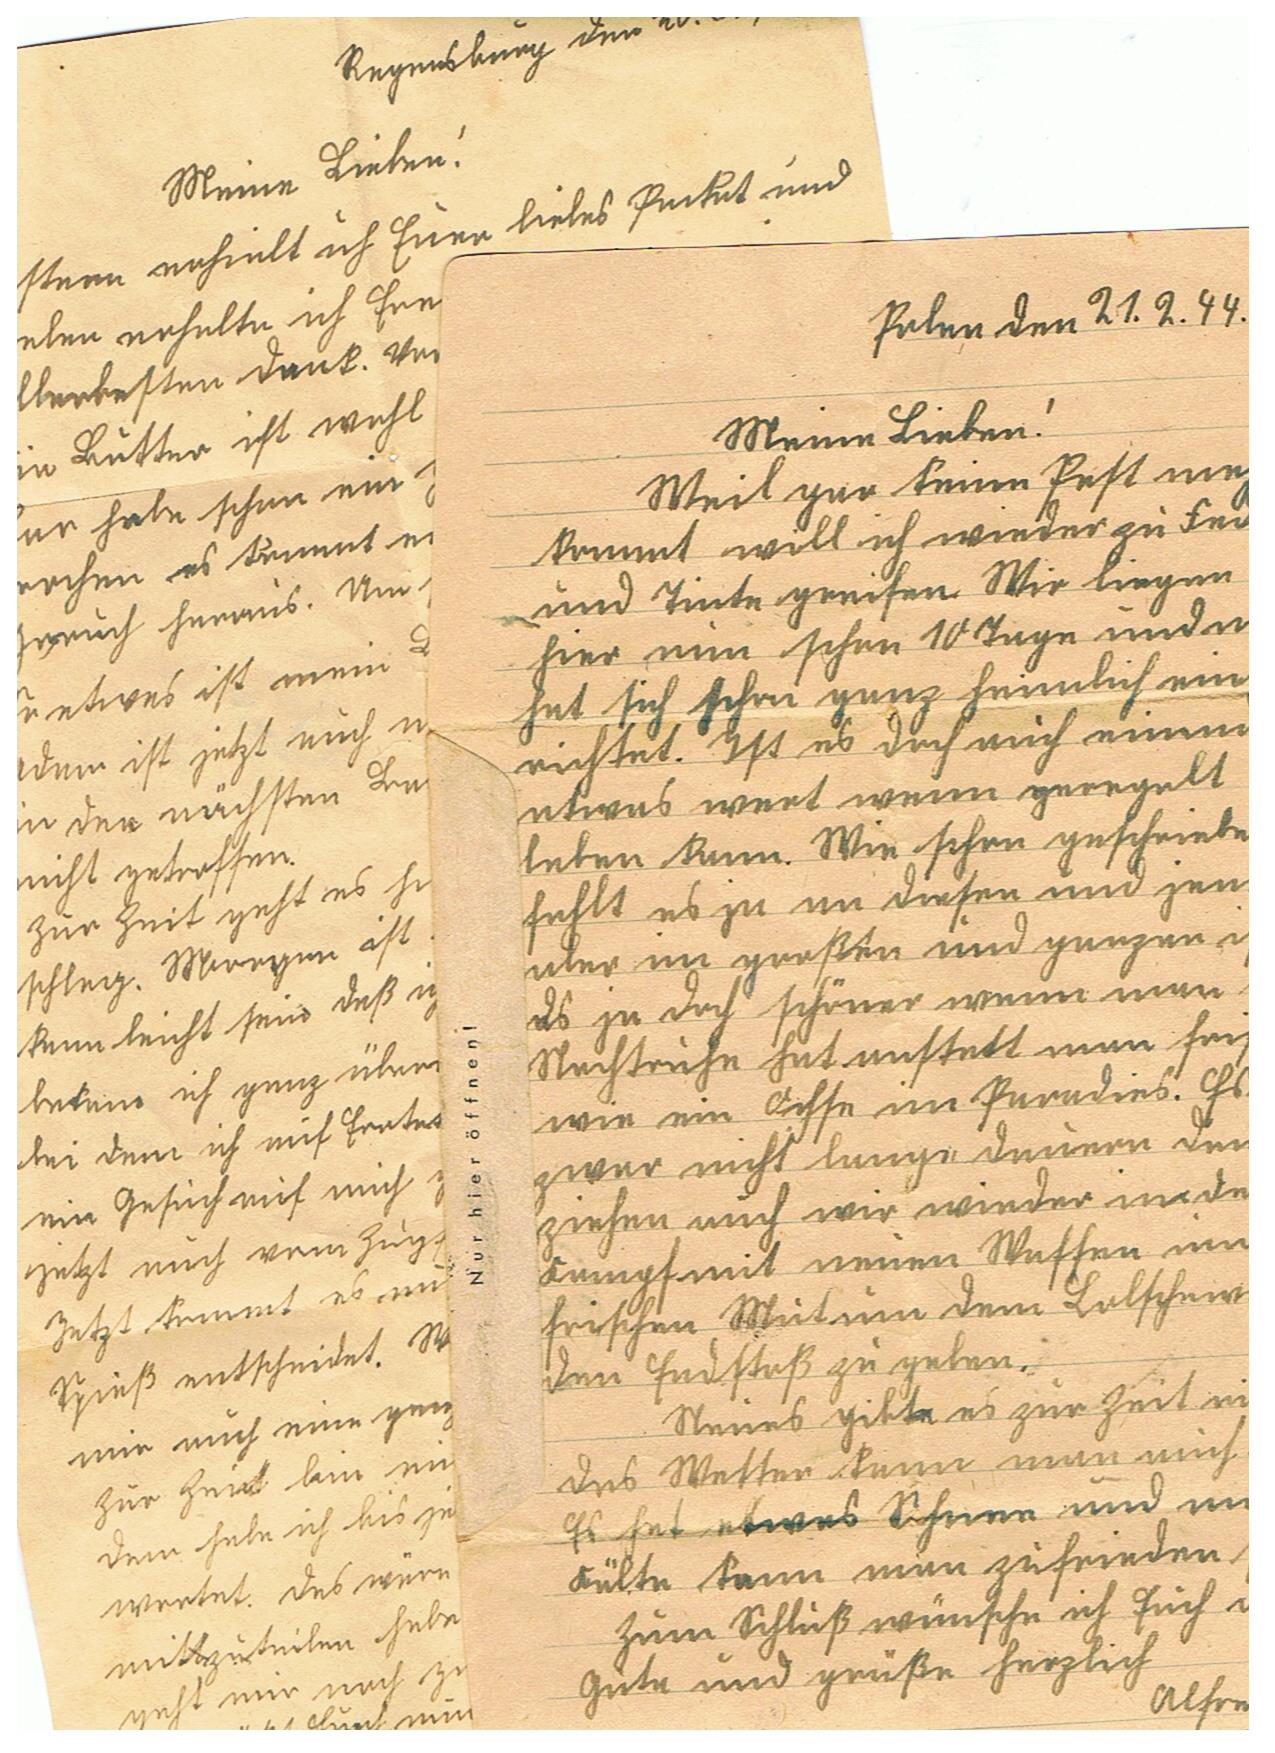 Regensburg den 20.
Meine Lieben!
stern erhielt ich Euer liebes Packet und
eben erhalte ich Eue
llerbesten Dank. Vor
in Butter ist wohl
ar habe schon ein
rochen es kommt ei
Geruch heraus. Um
etwas ist mein
dem ist jetzt auch
in der nächsten
nicht getroffen.
Zur Zeit geht es
schlag. Morgen ist
kann leicht sein daß
bekam ich ganz über
bei dem ich auf
ein Gesuch auf mich
jetzt auch vom Zug
Jetzt kommt es
Spieß entscheidet. W
mir auch eine ganz
Zur Zeit bin
dem habe ich bis je
wartet. Das wäre
mitzuteilen habe
geht mir noch
Nur hier öffnen!
Polen den 21.2.44.
Meine Lieben!
Weil gar keine Post
kommt will ich wieder zu Fed
und Tinte greifen. Wir liegen
hier nun schon 10 Tage und
hat sich schon ganz heimlich ein
richtet. Ist es doch auch einmal
etwas wert wenn geregelt
leben kann. Wie schon geschriebe
fehlt es ja an diesen und jen
aber im großen und ganzen
es ja doch schöner wenn man
Nachtruhe hat anstatt man
wie ein Ochse im Paradies. Es
zwar nicht lange dauern den
ziehen auch wir wieder in de
Kampf mit neuen Waffen
frischen Mut um dem Bolschew
den Endstoß zu geben.
Neues gibts es zur Zeit
das Wetter kann man auch
Es hat etwas Schnee und
Kälte kann man zufrieden
Zum Schluß wünsche ich Euch
Gute und grüße herzlich
Alfre